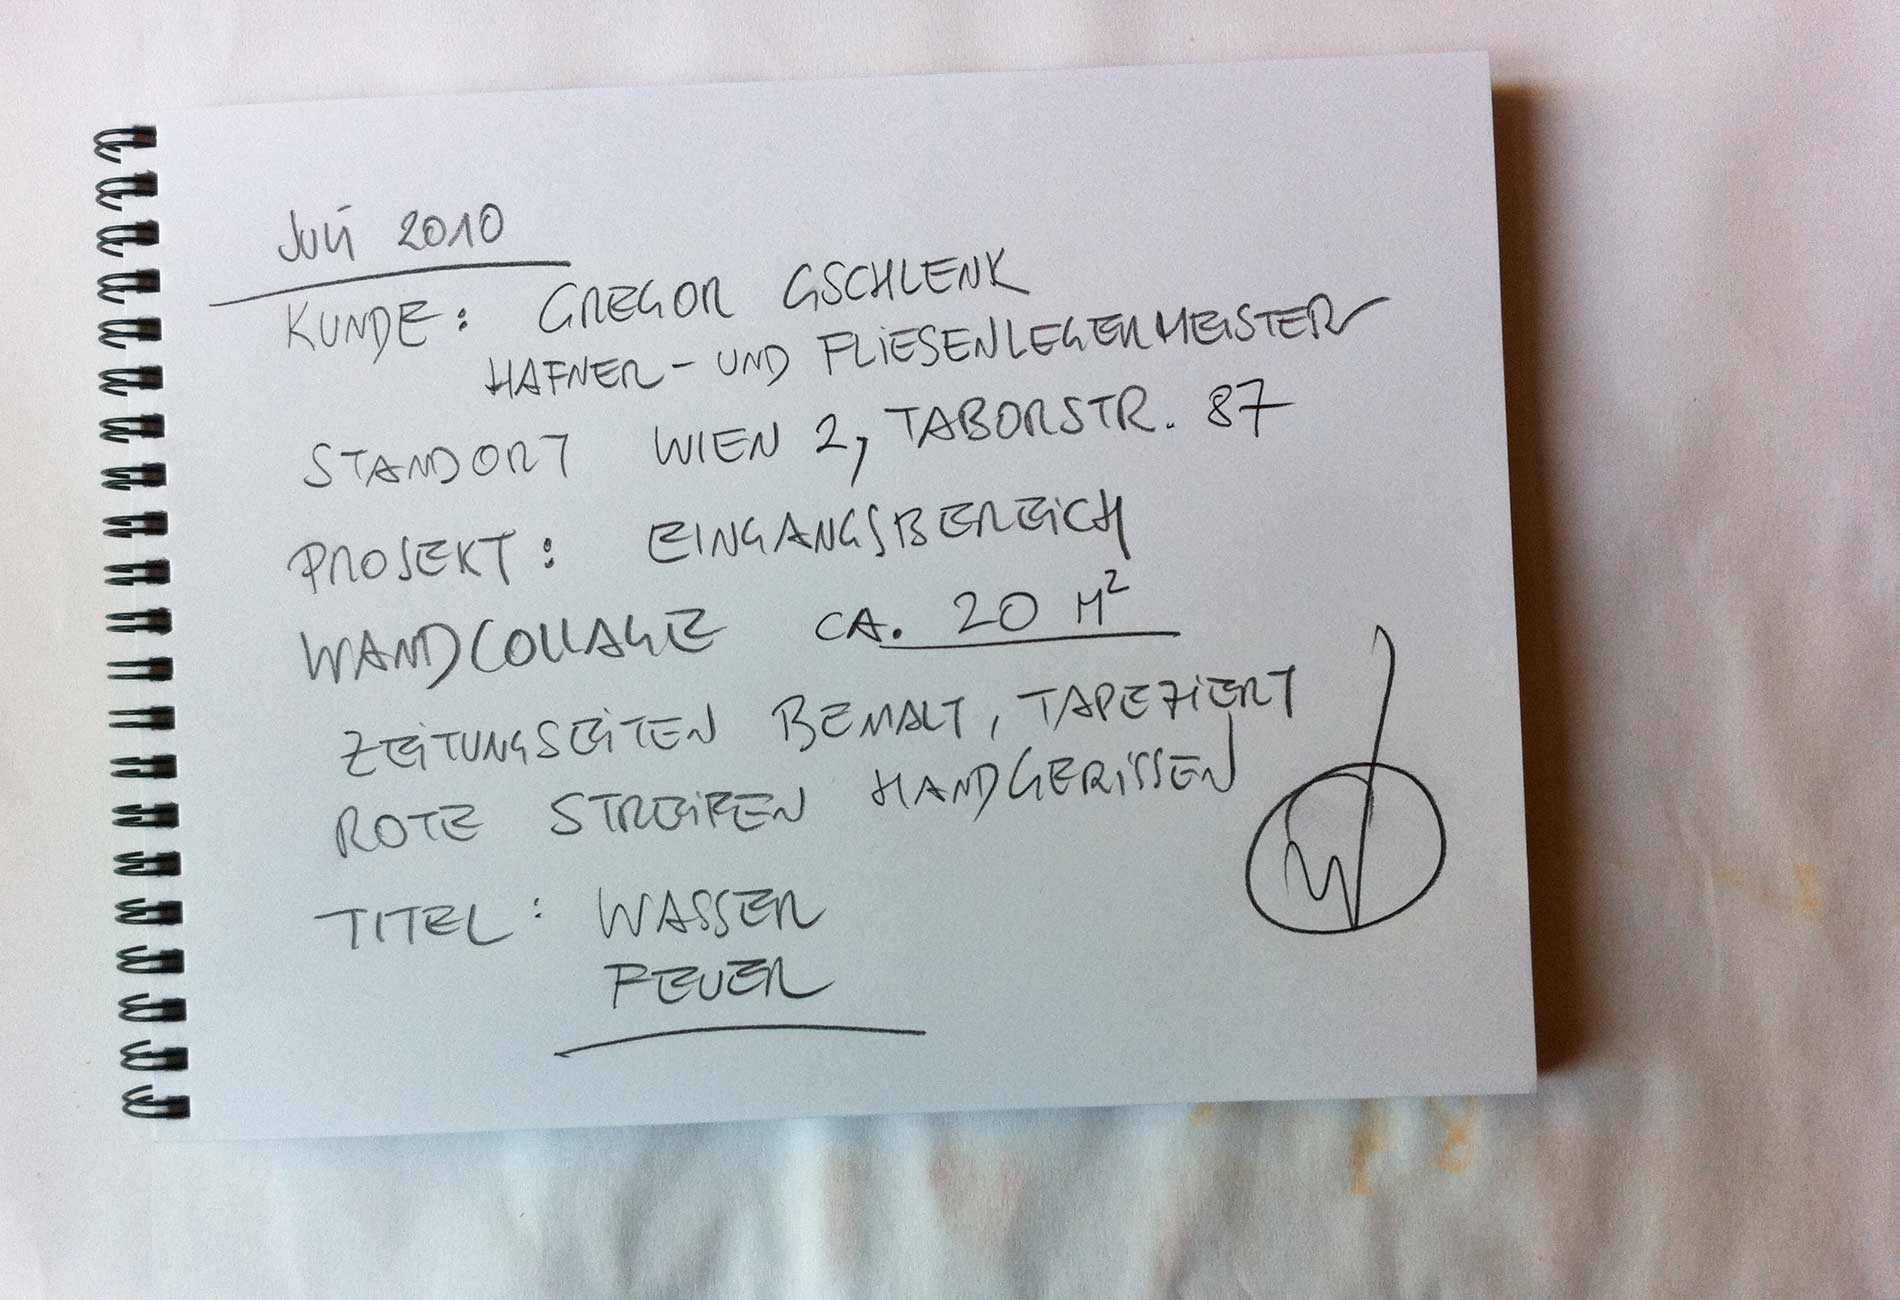 Juli 2010
KUNDE: GREGOR GSCHLENK
HAFNER- UND FLIESENLEGERMEISTER
STANDORT WIEN 2, TABORSTR. 87
PROJEKT: EINGANGSBEREICH
WANDCOLLAGE CA. 20 M²
ZEITUNGSEITEN BEMALT, TAPEZIERT
ROTE STREIFEN HANDGERISSEN
TITEL: WASSER
FEUER